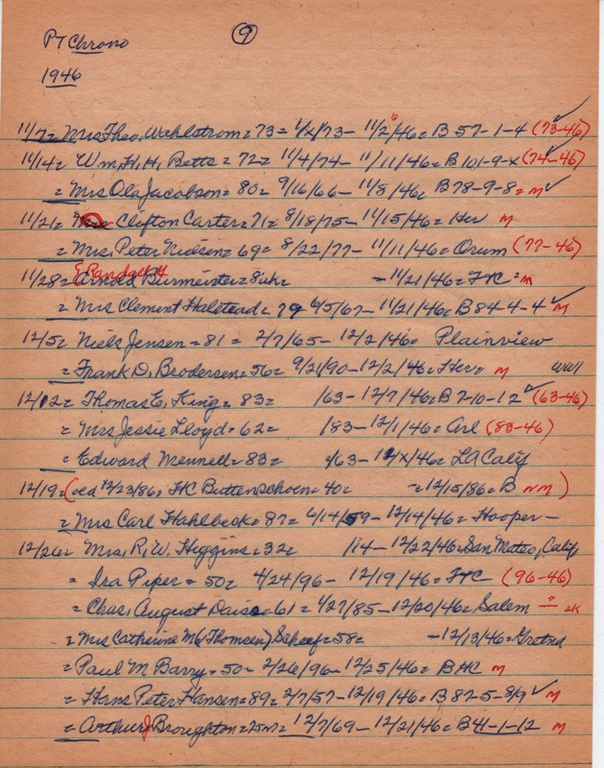 PT Chrono ⑨
1946
11/7= Mrs Theo. Wahlstrom=73= 1/x/73- 11/2/46= B 57-1-4 (73-46)
11/14= Wm. H. H. Betts=72= 11/4/74-11/11/46= B 101-9-x (74-46)
= Mrs Ola Jacobson=80= 9/16/66-11/8/46= B78-9-8= m
11/21= Clifton Carter=71= 8/18/75-11/15/46= Her m
= Mrs. Peter Nielsen=69= 8/22/77-11/11/46= Orum (77-46)
11/28= Arnold Burmeister=8wks -11/21/46= m
= Mrs Clement Halstead= 79 6/5/67-11/21/46= B 84-4-4 m
12/5= Niels Jensen=81= 2/7/65-12/2/46= Plainview
= Frank D. Brodersen=56= 9/21/90-12/2/46= Her= m WWI
12/12= Thomas E. King= 83= /63-12/7/46= B 7-10-12 (63-46)
= Mrs Jessie Lloyd=62= /83-12/1/46= Arl (83-46)
= Edward Mennell=83= /63-12/x/46= LA Calif
12/19=( 12/23/86= Buttenschoen=40= -=12/15/86= B nm )
= Mrs Carl Hahlbeck=87= 6/14/59-12/14/46= Hooper-
12/26= Mrs. R. W. Higgins=32= /14-12/22/46= San Mateo, Calif
= Ira Piper=50= 4/24/96-12/19/46= (96-46)
= Chas. August =61= 1/27/85-12/20/46= Salem
= Mrs Catherine M (Thomsen) =58= -12/13/46= Gretna
= Paul M Barry=50- 2/26/96-12/25/46= m
= Hans Peter Hansen=89= 2/7/57-12/19/46= B 87-5-8/9 m
= Arthur J Broughton= 12/7/69-12/21/46= B 41-1-12 m